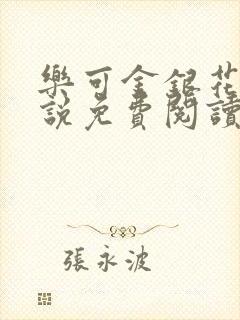 樂可金銀花
說免費閱讀
張永波